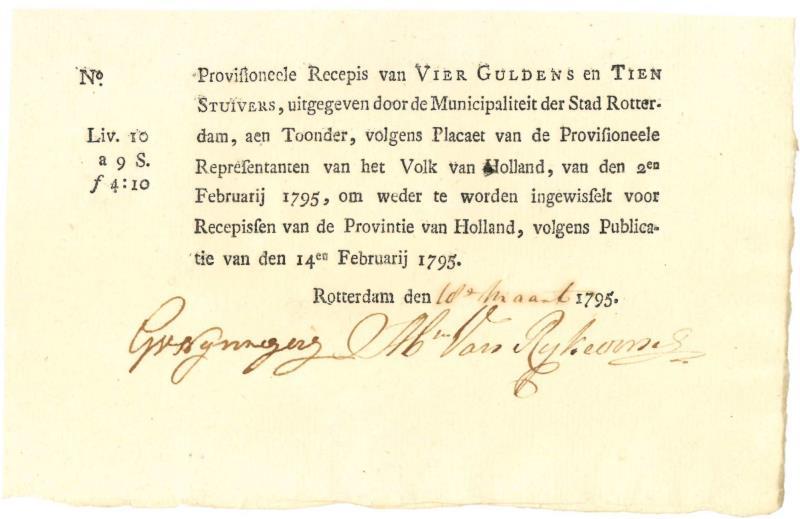 No. Provisioneele Recepis van VIER GULDENS en TIEN
STUIVERS, uitgegeven door de Municipaliteit der Stad Rotter-
Liv. 10 dam, aen Toonder, volgens Placaet van de Provisioneele
a 9 S. Representanten van het Volk van Holland, van den 2en
f 4:10 Februarij 1795, om weder te worden ingewisselt voor
Recepissen van de Provintie van Holland, volgens Publica-
tie van den 14en Februarij 1795.
Rotterdam den 18e Maart 1795.
Van